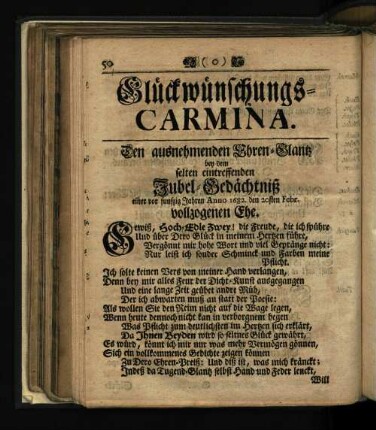 50 ( o )
Glückwünschungs-
CARMINA.
Den ausnehmenden Ehren-Glantz
bey dem
selten eintreffenden
Jubel-Gedächtniß
einer vor funfzig Jahren ANNO 1682. den 20sten Febr.
vollzogenen Ehe.
Gewiß, Hoch-Edle Zwey! die Freude, die ich spühre
Und über Dero Glück in meinem Hertzen führe,
Vergönnt mir hohe Wort und viel Gepränge nicht:
Nur leist ich sonder Schminck und Farben meine
Pflicht.
Ich solte keinen Vers von meiner Hand verlangen,
Denn bey mir alles Feur der Dicht-Kunst ausgegangen
Und eine lange Zeit geübet andre Müh,
Der ich abwarten muß an statt der Poesie:
Als wollen Sie den Reim nicht auf die Wage legen,
Wenn heute dennoch nicht kan in verborgnem hegen
Was Pflicht zum deutlichsten im Hertzen sich erklärt,
Da Ihnen Beyden wird so seltnes Glück gewährt,
Es würd, könnt ich mir nur was mehr Vermögen gönnen,
Sich ein vollkommenes Gedichte zeigen können
Zu Dero Ehren-Preiß: Und diß ist, was mich kränckt:
Indeß da Tugend-Glantz selbst Hand und Feder lenckt,
Will